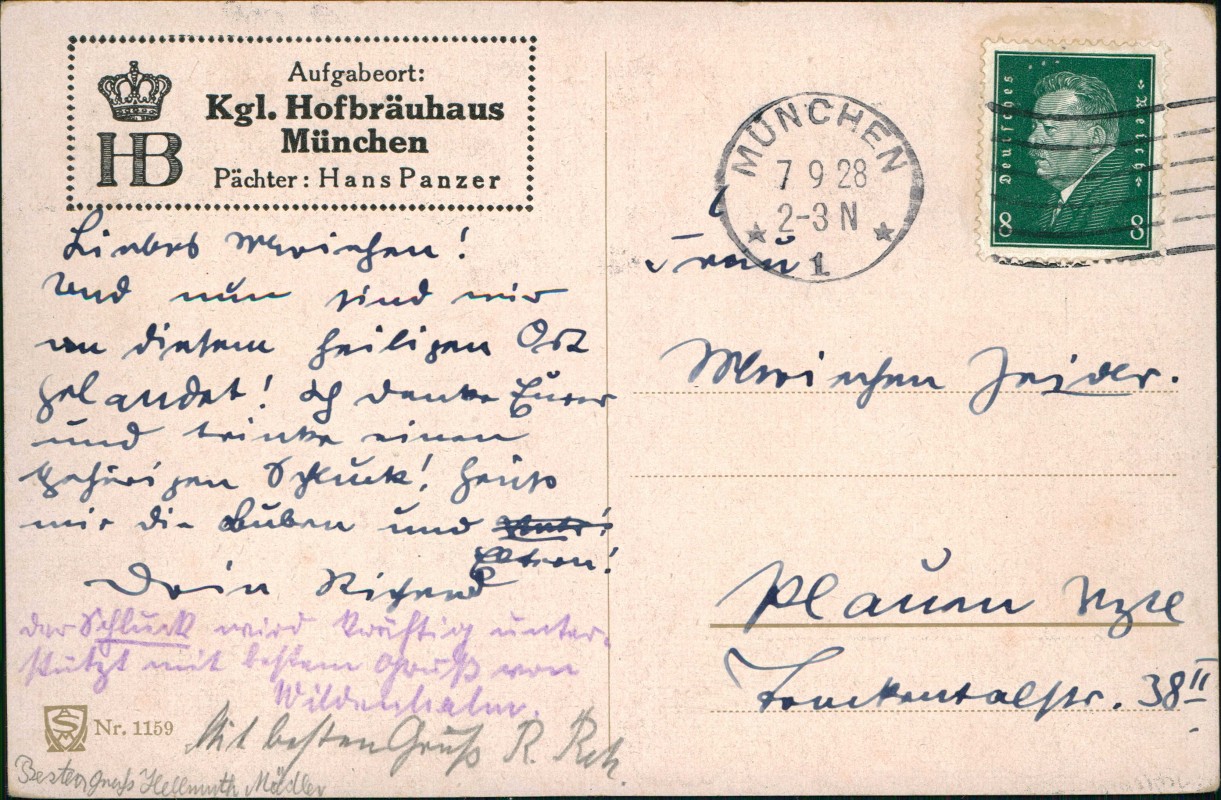 Aufgabeort:
Kgl. Hofbräuhaus
München
HB
Pächter: Hans Panzer
MÜNCHEN
7 9 28
2-3 N
1
Deutsches
Reich
8 8
Liebes Mariechen!
Und nun sind wir
an diesem heiligen Ort
gelandet! Ich denke Eurer
und trinke einen
gehörigen Schluck! Grüß
mir die Buben und
Eltern!
Dein Richard
der Schluck wird kräftig unter-
stützt mit bestem Gruß von
Nr. 1159
Mit besten Gruß R.
Besten Gruß Hellmuth Mädler
Frau
Mariechen
Plauen Vgtl
38 II